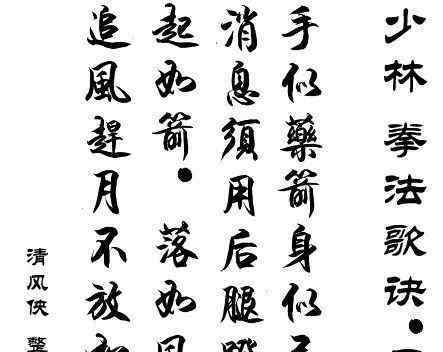 少林拳法歌诀
手似藥箭身似
消息須用后腿
起如箭落如
追風趕月不放
清风侠整